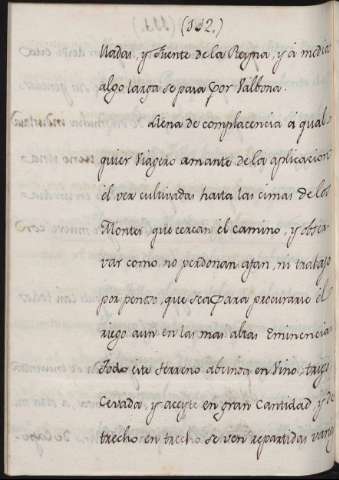 (132.)
lladas, y Fuente de la Reyna, y á media
algo larga se pasa por Valbona.
Llena de complacencia á qual-
quier Viagero amante de la aplicacion
el ver cultivadas hasta las cimas de los
Montes que cercan el camino, y obser-
var como no perdonan afan, ni trabajo
por penoso, que sea para procurarse el
riego aun en las mas altas Eminencias
Todo este terreno abunda en Vino, trigo
Cevada, y aceyte en gran Cantidad y de
trecho en trecho se ven repartidas varias